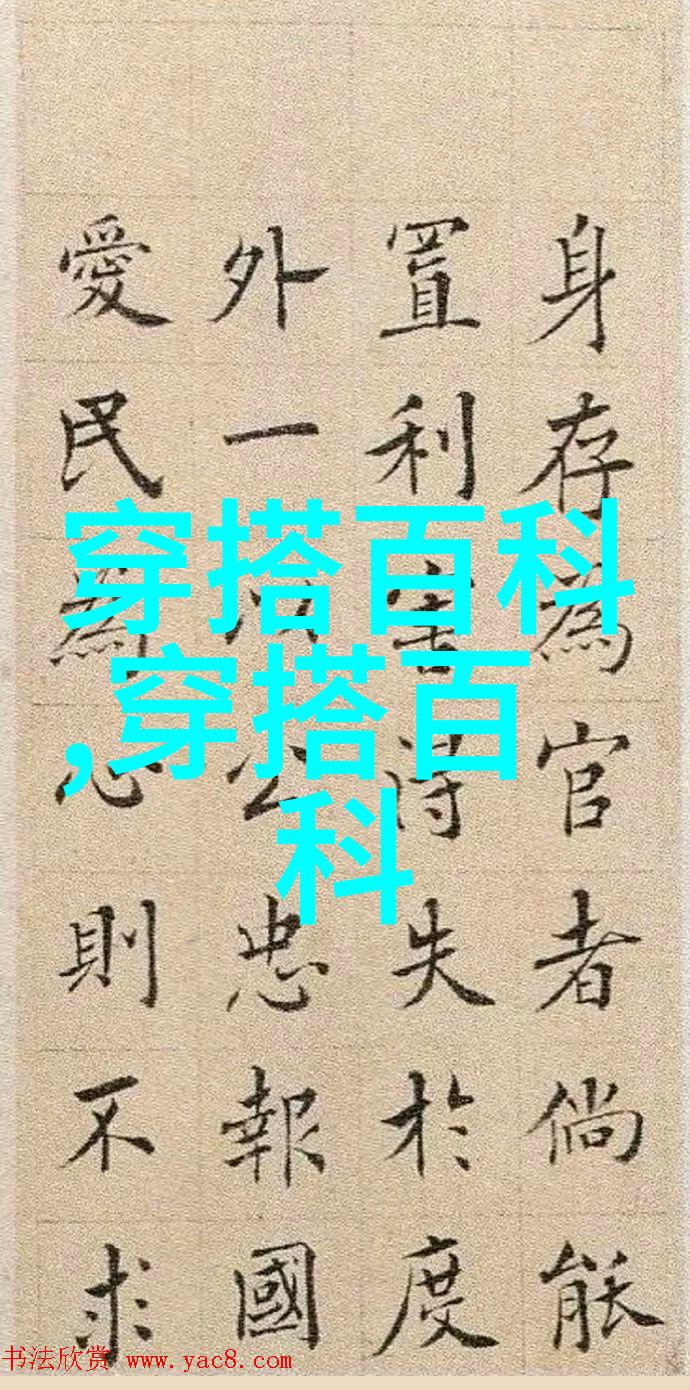 身存為官者倘能
置利害得失於度
外一以公忠報國
愛民為心則不求
穿搭百科
,穿搭百
科
书法欣赏 www.yac8.com